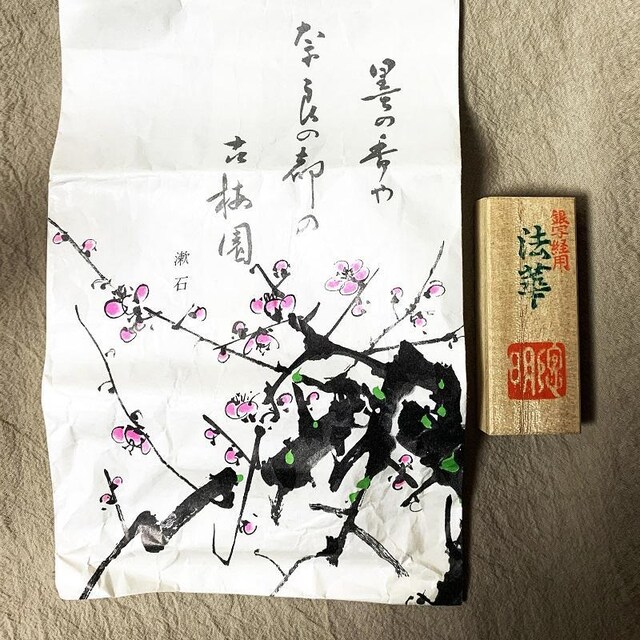 墨の香や
奈良の都の
古梅園
漱石
銀字経用
法華